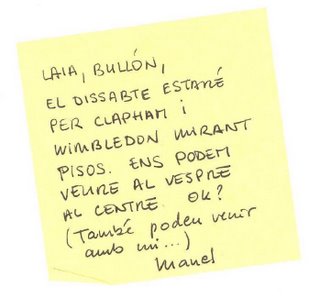 LAIA, BULLÓN,
EL DISSABTE ESTARÉ
PER CLAPHAM i
WIMBLEDON MIRANT
PISOS. ENS PODEM
VEURE AL VESPRE
AL CENTRE. OK?
(També podeu venir
amb mi...)
Manel